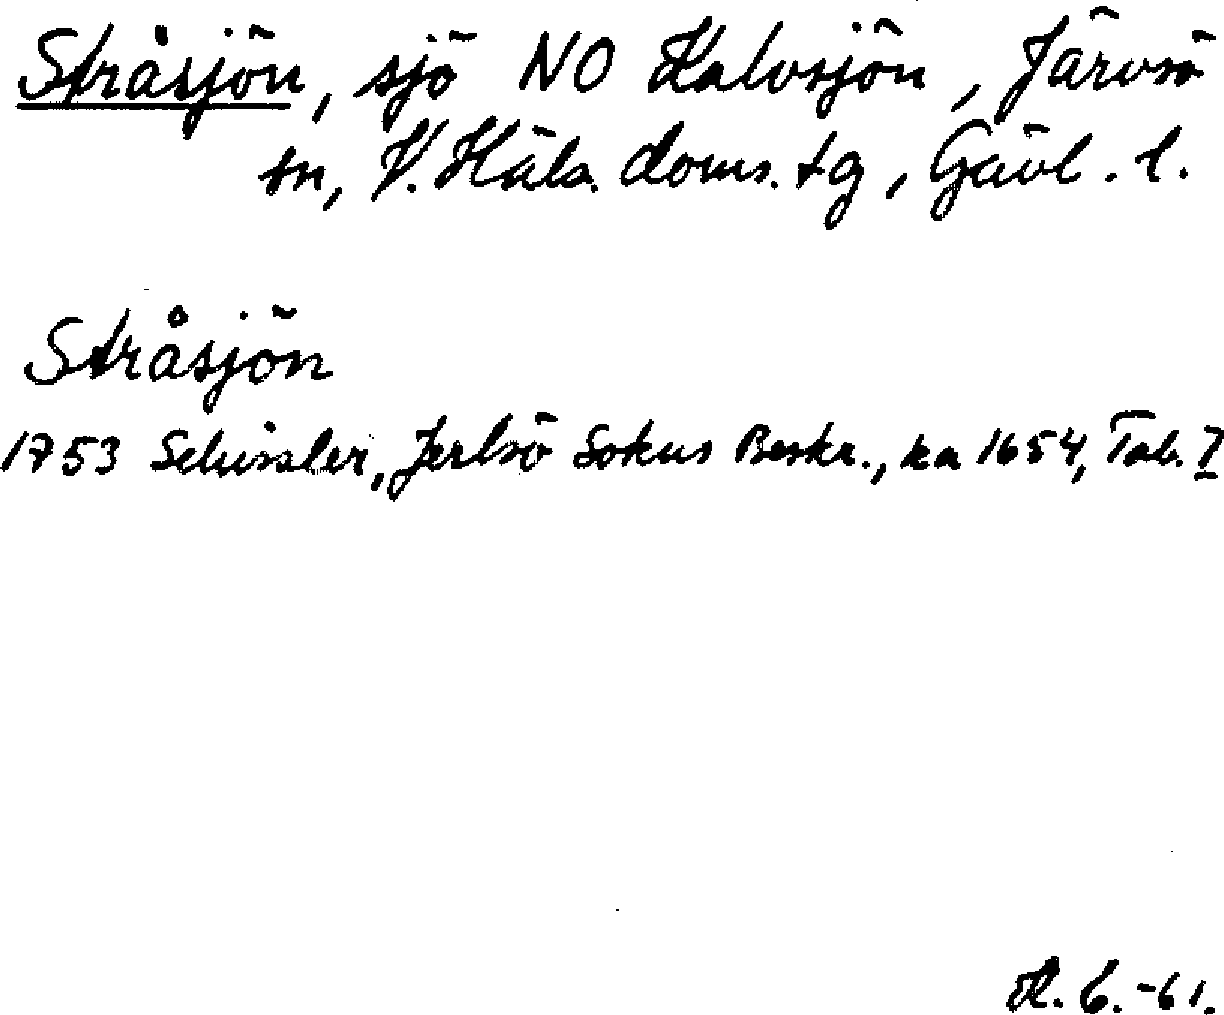 Stråsjön, sjö NO Kalvsjön, Järvsö
sn, V. Häls. doms. tg, Gävl. l.
Stråsjön
1753 Schissler, Jerlsö Sokns Beskr., ka 1654, Tab. I
R. B. -61.